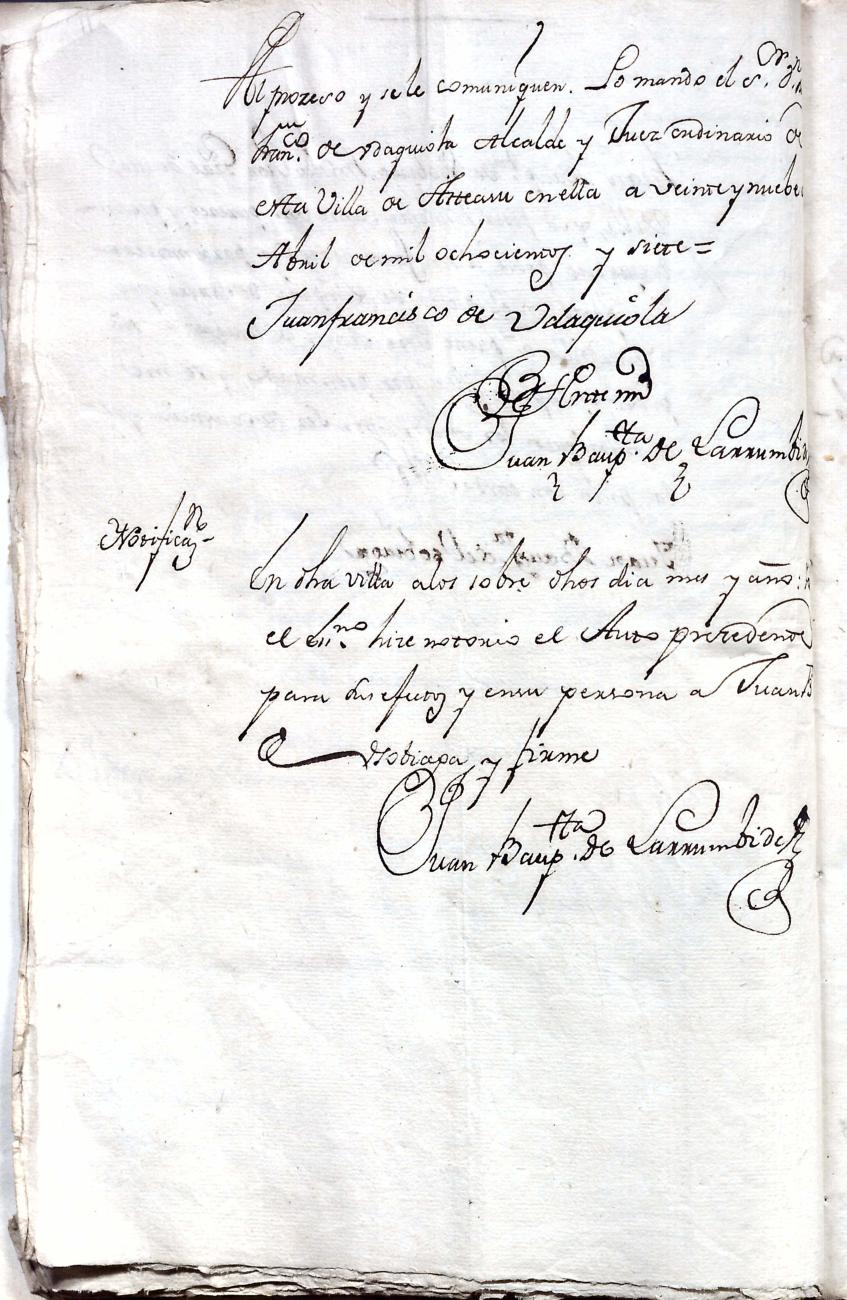 Al prozeso y se le comuniquen. Lo mando el s.or
Fran.co de Vdaquiola Alcalde y Juez ordinario de
esta Villa de Asteasu en ella a veinte y nuebe
Abril de mil ochocientos y siete =
Juanfrancisco de Udaquiola
Ante mi
Juan Baup.tta de Larrumbide
Notificaz.n
En dha villa a los sobre dhos dia mes y año:
el Ess.no hize notorio el Auto prezedente
para sus efectos y en su persona a Juan B
y firme
Juan Baup.tta de Larrumbide